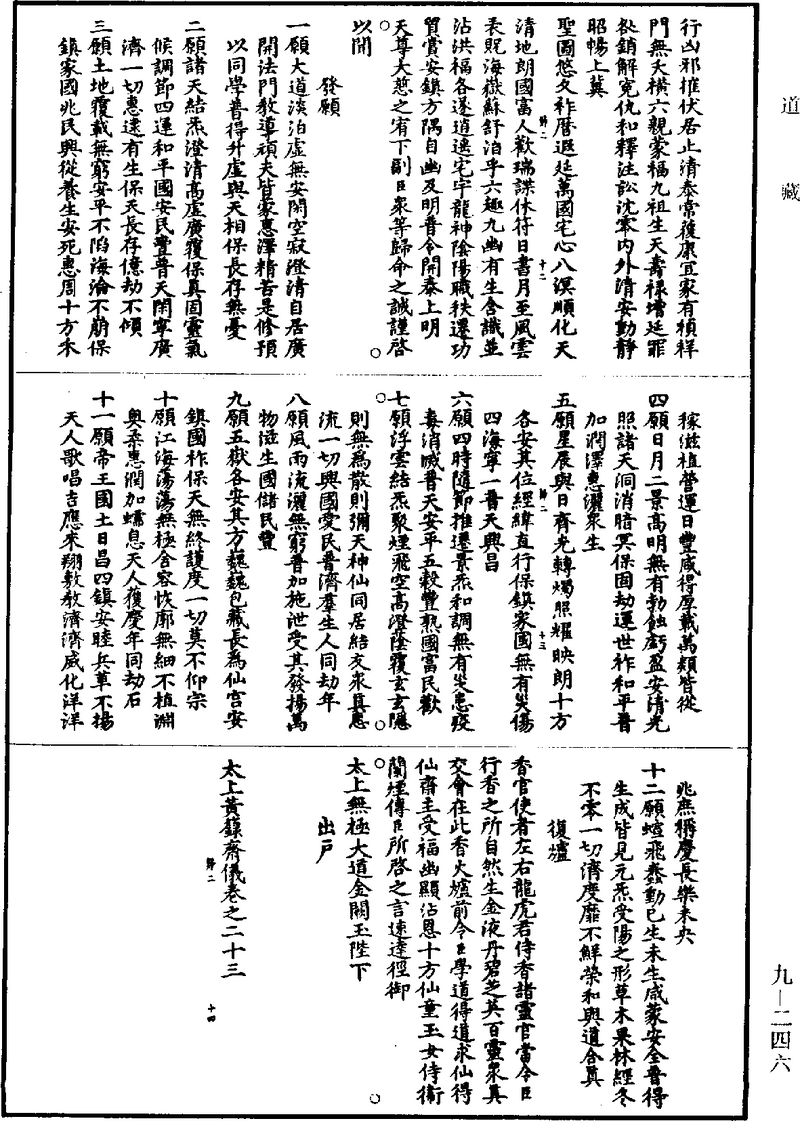 道藏
行凶邪摧伏居止清泰常復康宜家有禎祥
門無夭橫六親蒙福九祖生天壽祿增延罪
咎銷解冤仇和釋注訟沈零內外清安動靜
昭暢上冀
聖圖悠久祚曆遐延萬國宅心八溟順化天
清地朗國富人歡瑞諜休符日書月至風雲
表貺海嶽蘇舒洎乎六趣九幽有生含識並
沾洪福各遂逍遙宅宇龍神陰陽職秩遷功
質賞安鎮方隅自幽及明普令開泰上明
天尊大慈之宥下副臣衆等歸命之誠謹啓
以聞
發願
一願大道淡泊虛無安閑空寂澄清自居廣
開法門教導頑夫皆蒙惠澤精苦是修預
以同學普得升虛與天相保長存無憂
二願諸天結炁澄清高虛廣覆保真固靈氣
候調節四運和平國安民豐普天閑寧廣
濟一切惠逮有生保天長存億劫不傾
三願土地覆載無窮安平不陷海淪不崩保
鎮家國兆民興從養生安死惠周十方禾
稼滋植營運日豐咸得厚載萬類皆從
四願日月二景高明無有勃蝕虧盈安清光
照諸天洞消暗冥保固劫運世祚和平普
加潤澤惠灑衆生
五願星辰與日齊光轉燭照耀映朗十方
各安其位經緯直行保鎮家國無有災傷
四海寧一普天興昌
六願四時隨節推遷景炁和調無有災患疫
毒消滅普天安平五穀豐熟國富民歡
七願浮雲結炁聚煙飛空高澄蔭覆玄玄隱
則無爲散則彌天神仙同居結友衆真惠
流一切興國愛民普濟羣生人同劫年
八願風雨流灑無窮普加施泄受其發揚萬
物滋生國儲民豐
九願五嶽各安其方巍巍包藏長爲仙宫安
鎮國祚保天無終護度一切莫不仰宗
十願江海蕩蕩無極含容恢廓無細不植淵
奧柔惠潤加蠕息天人獲慶年同劫石
十一願帝王國土日昌四鎮安睦兵革不揚
天人歌唱吉應來翔敷教濟濟威化洋洋
兆庶稱慶長樂未央
十二願蝖飛蠢動已生未生咸蒙安全普得
生成皆見元炁受陽之形草木果林經冬
不零一切濟度靡不鮮榮和與道合真
復爐
香官使者左右龍虎君侍香諸靈官當令臣
行香之所自然生金液丹碧芝英百靈衆真
交會在此香火爐前令臣學道得道求仙得
仙齋主受福幽顯沾恩十方仙童玉女侍衛
蘭煙傳臣所啓之言速達徑御
太上無極大道金闕玉陛下
出戶
太上黃籙齋儀卷之二十三
九—二四六